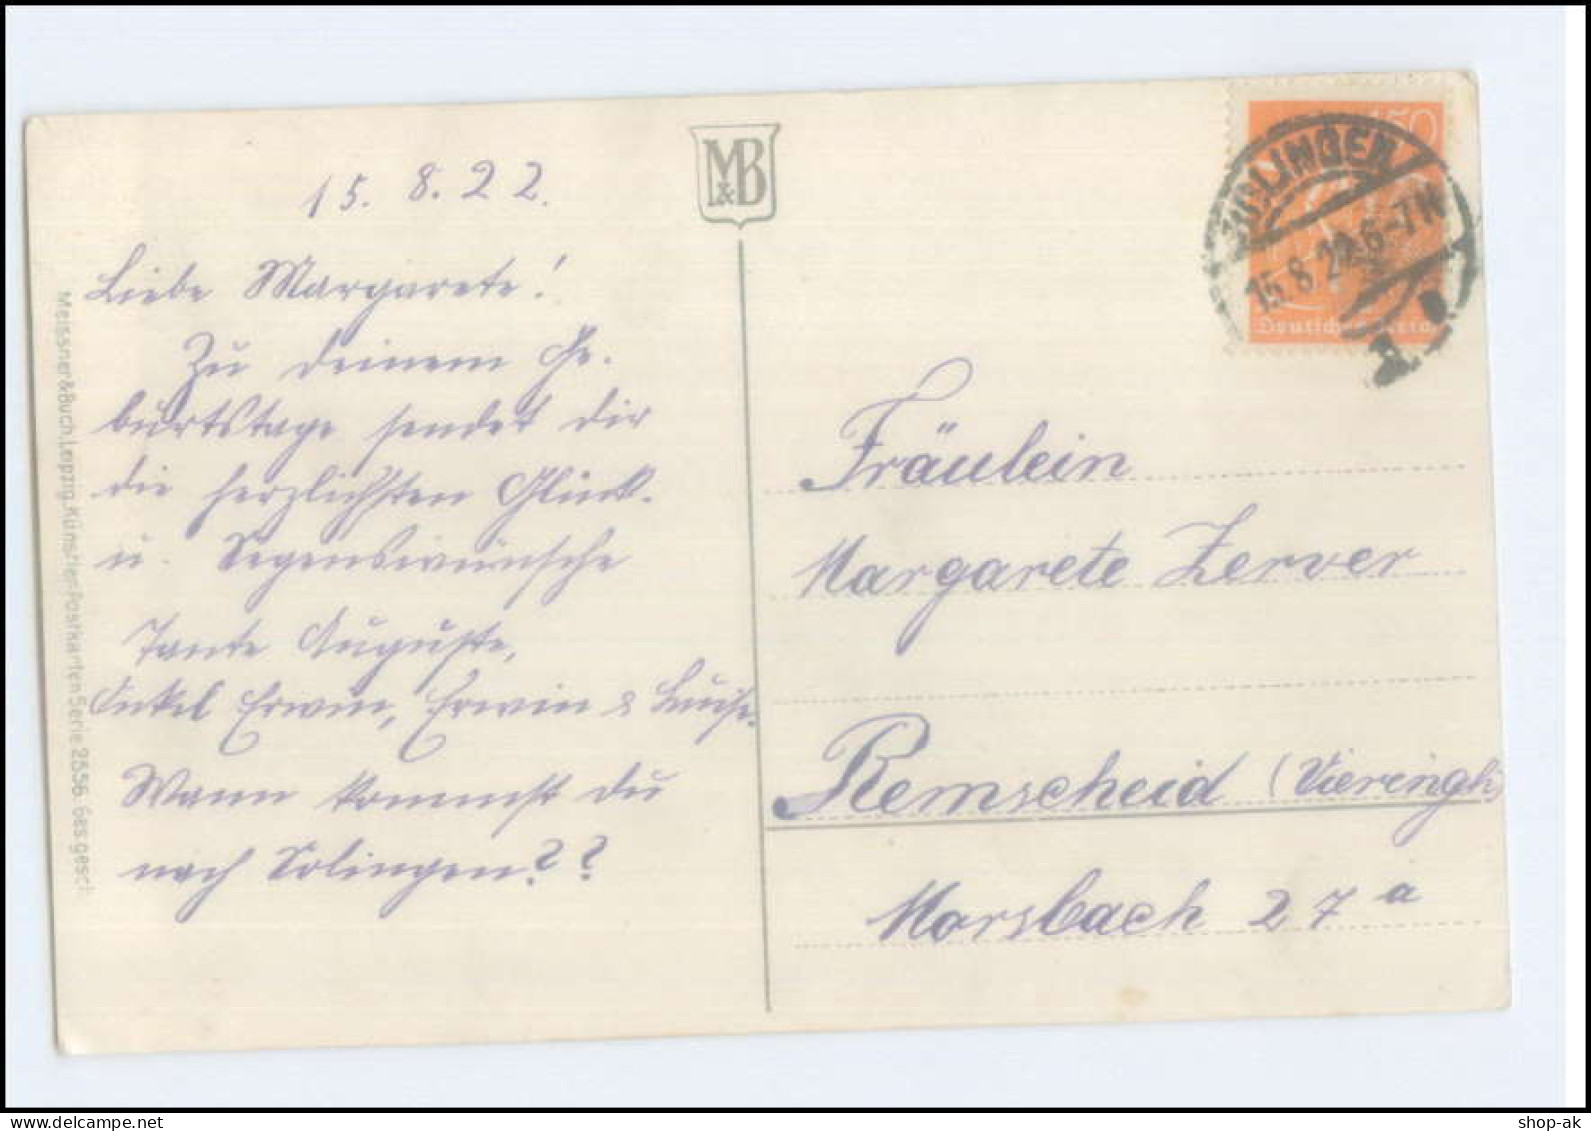 M&B
15. 8. 22.
Liebe Margarete!
Zu deinem Ge-
burtstage sendet dir
die herzlichsten Glück-
u. Segenswünsche
Tante Auguste,
Onkel Erwin, Erwin & Luise.
Wann kommst du
nach Solingen??
Meissner & Buch, Leipzig. Künstler-Postkarten Serie 2556. Ges. gesch.
150
Deutsches Reich
SOLINGEN
15.8.22.6-7N
Fräulein
Margarete Zerver
Remscheid (Vieringh.)
Morsbach 27 a
shop-ak